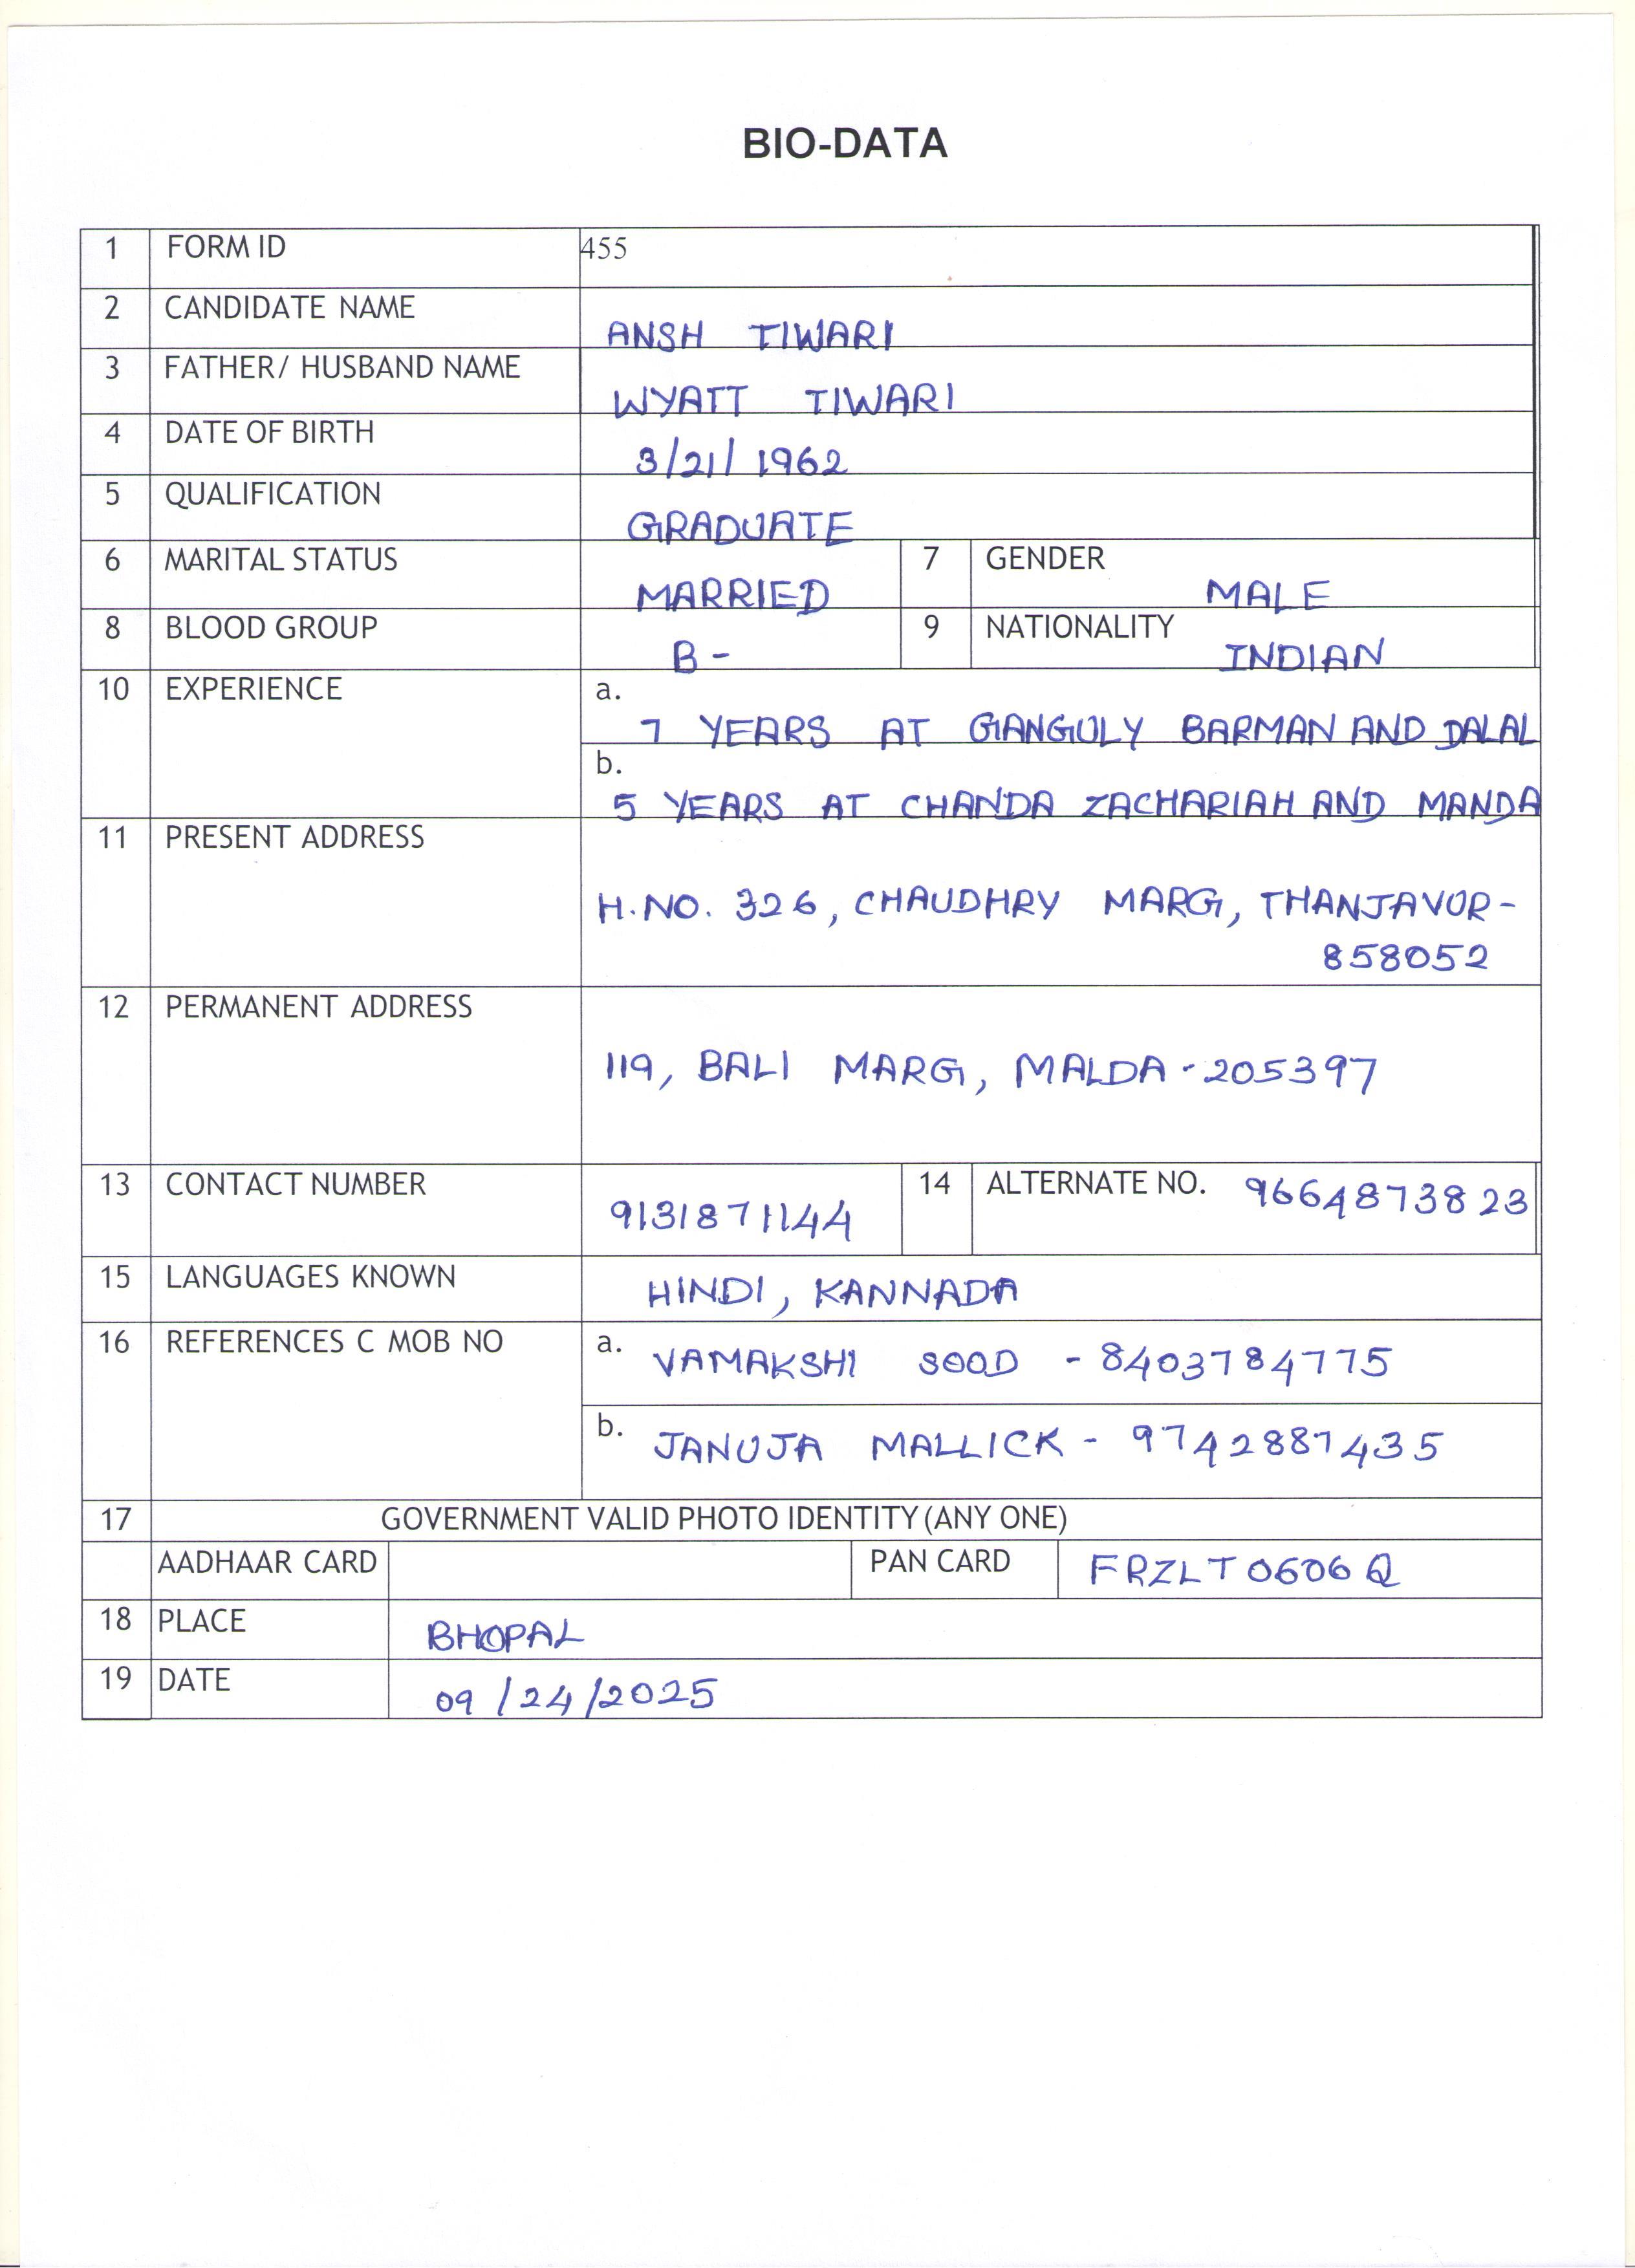 BIO-DATA
1 FORM ID 455
2 CANDIDATE NAME ANSH TIWARI
3 FATHER/ HUSBAND NAME WYATT TIWARI
4 DATE OF BIRTH 3/21/1962
5 QUALIFICATION GRADUATE
6 MARITAL STATUS MARRIED 7 GENDER MALE
8 BLOOD GROUP B- 9 NATIONALITY INDIAN
10 EXPERIENCE a. 7 YEARS AT GANGULY BARMAN AND DALAL
b. 5 YEARS AT CHANDA ZACHARIAH AND MANDA
11 PRESENT ADDRESS
H.NO. 326, CHAUDHRY MARG, THANJAVOR-
858052
12 PERMANENT ADDRESS
119, BALI MARG, MALDA-205397
13 CONTACT NUMBER 9131871144 14 ALTERNATE NO. 9664873823
15 LANGUAGES KNOWN HINDI, KANNADA
16 REFERENCES C MOB NO a. VAMAKSHI SOOD - 8403784775
b. JANUJA MALLICK - 9742887435
17 GOVERNMENT VALID PHOTO IDENTITY (ANY ONE)
AADHAAR CARD PAN CARD FRZLT0606Q
18 PLACE BHOPAL
19 DATE 09/24/2025